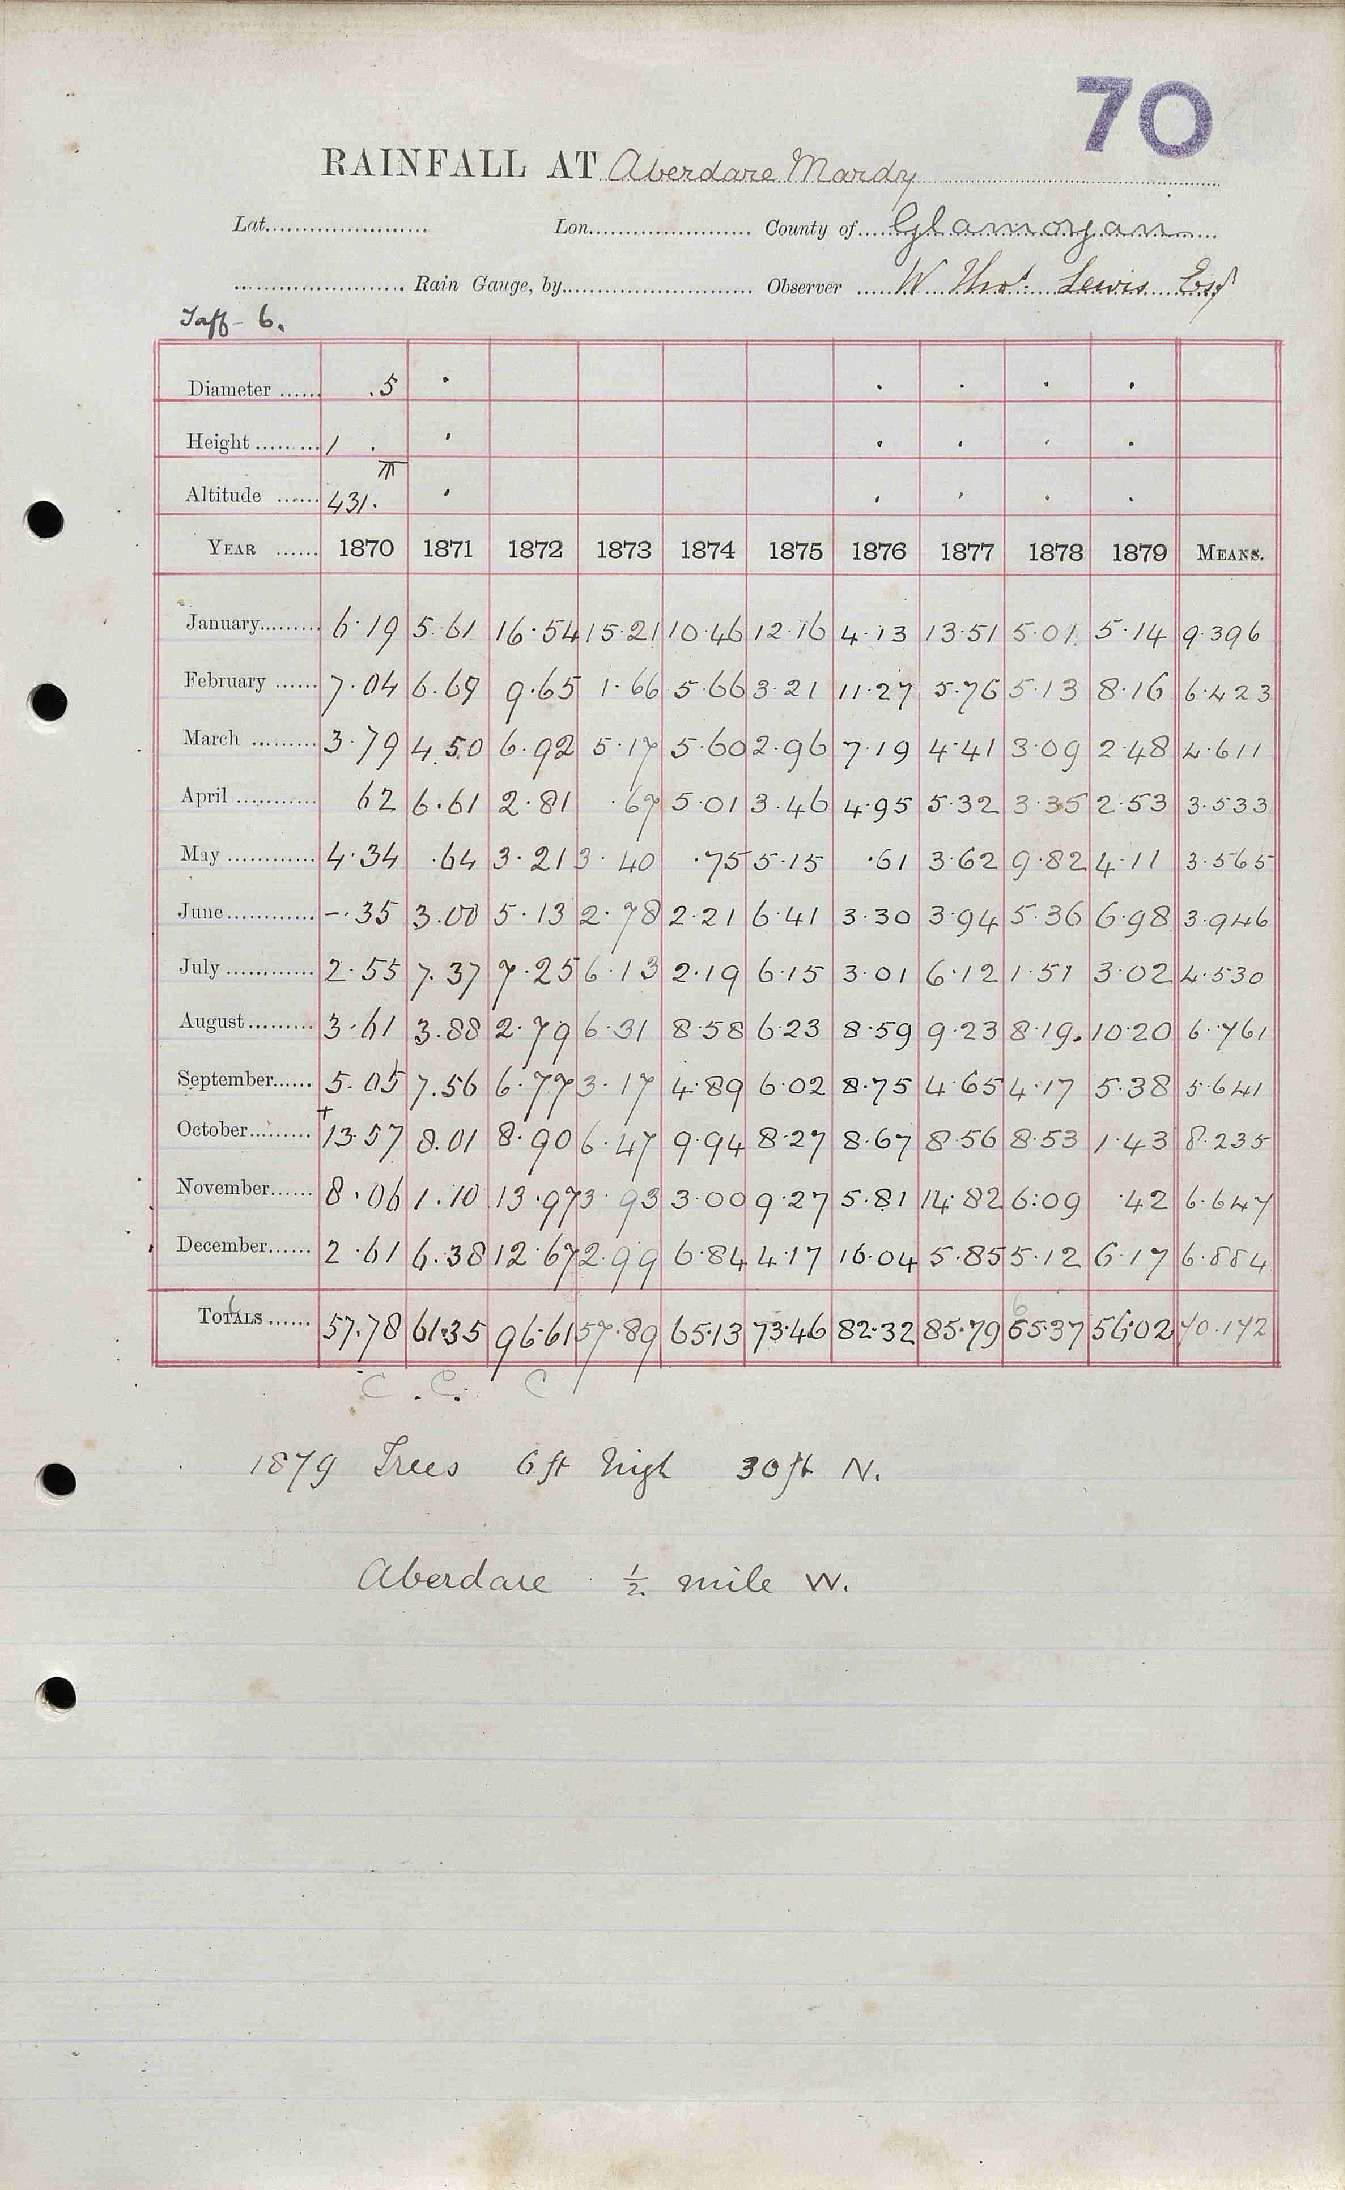 70
RAINFALL AT Aberdare Mardy
Lat. Lon. County of Glamorgan
Rain Gauge, by Observer W Thos. Lewis Esqr
Taff - 6.
Diameter .5
Height 1
Altitude 431.
YEAR 1870 1871 1872 1873 1874 1875 1876 1877 1878 1879 MEANS.
January 6.19 5.61 16.54 15.21 10.46 12.16 4.13 13.51 5.01 5.14 9.396
February 7.04 6.69 9.65 1.66 5.66 3.21 11.27 5.76 5.13 8.16 6.423
March 3.79 4.50 6.92 5.17 5.60 2.96 7.19 4.41 3.09 2.48 4.611
April 62 6.61 2.81 .67 5.01 3.46 4.95 5.32 3.35 2.53 3.533
May 4.34 .64 3.21 3.40 .75 5.15 .61 3.62 9.82 4.11 3.565
June -.35 3.00 5.13 2.78 2.21 6.41 3.30 3.94 5.36 6.98 3.946
July 2.55 7.37 7.25 6.13 2.19 6.15 3.01 6.12 1.51 3.02 4.530
August 3.61 3.88 2.79 6.31 8.58 6.23 8.59 9.23 8.19. 10.20 6.761
September 5.05 7.56 6.77 3.17 4.89 6.02 8.75 4.65 4.17 5.38 5.641
October +13.57 8.01 8.90 6.47 9.94 8.27 8.67 8.56 8.53 1.43 8.235
November 8.06 1.10 13.97 3.93 3.00 9.27 5.81 14.82 6.09 .42 6.647
December 2.61 6.38 12.67 2.99 6.84 4.17 16.04 5.85 5.12 6.17 6.884
TOTALS 57.78 61.35 96.61 57.89 65.13 73.46 82.32 85.79 65.37 56.02 70.172
C . C. C
1879 Trees 6 ft high 30 ft N.
Aberdare ½ mile W.